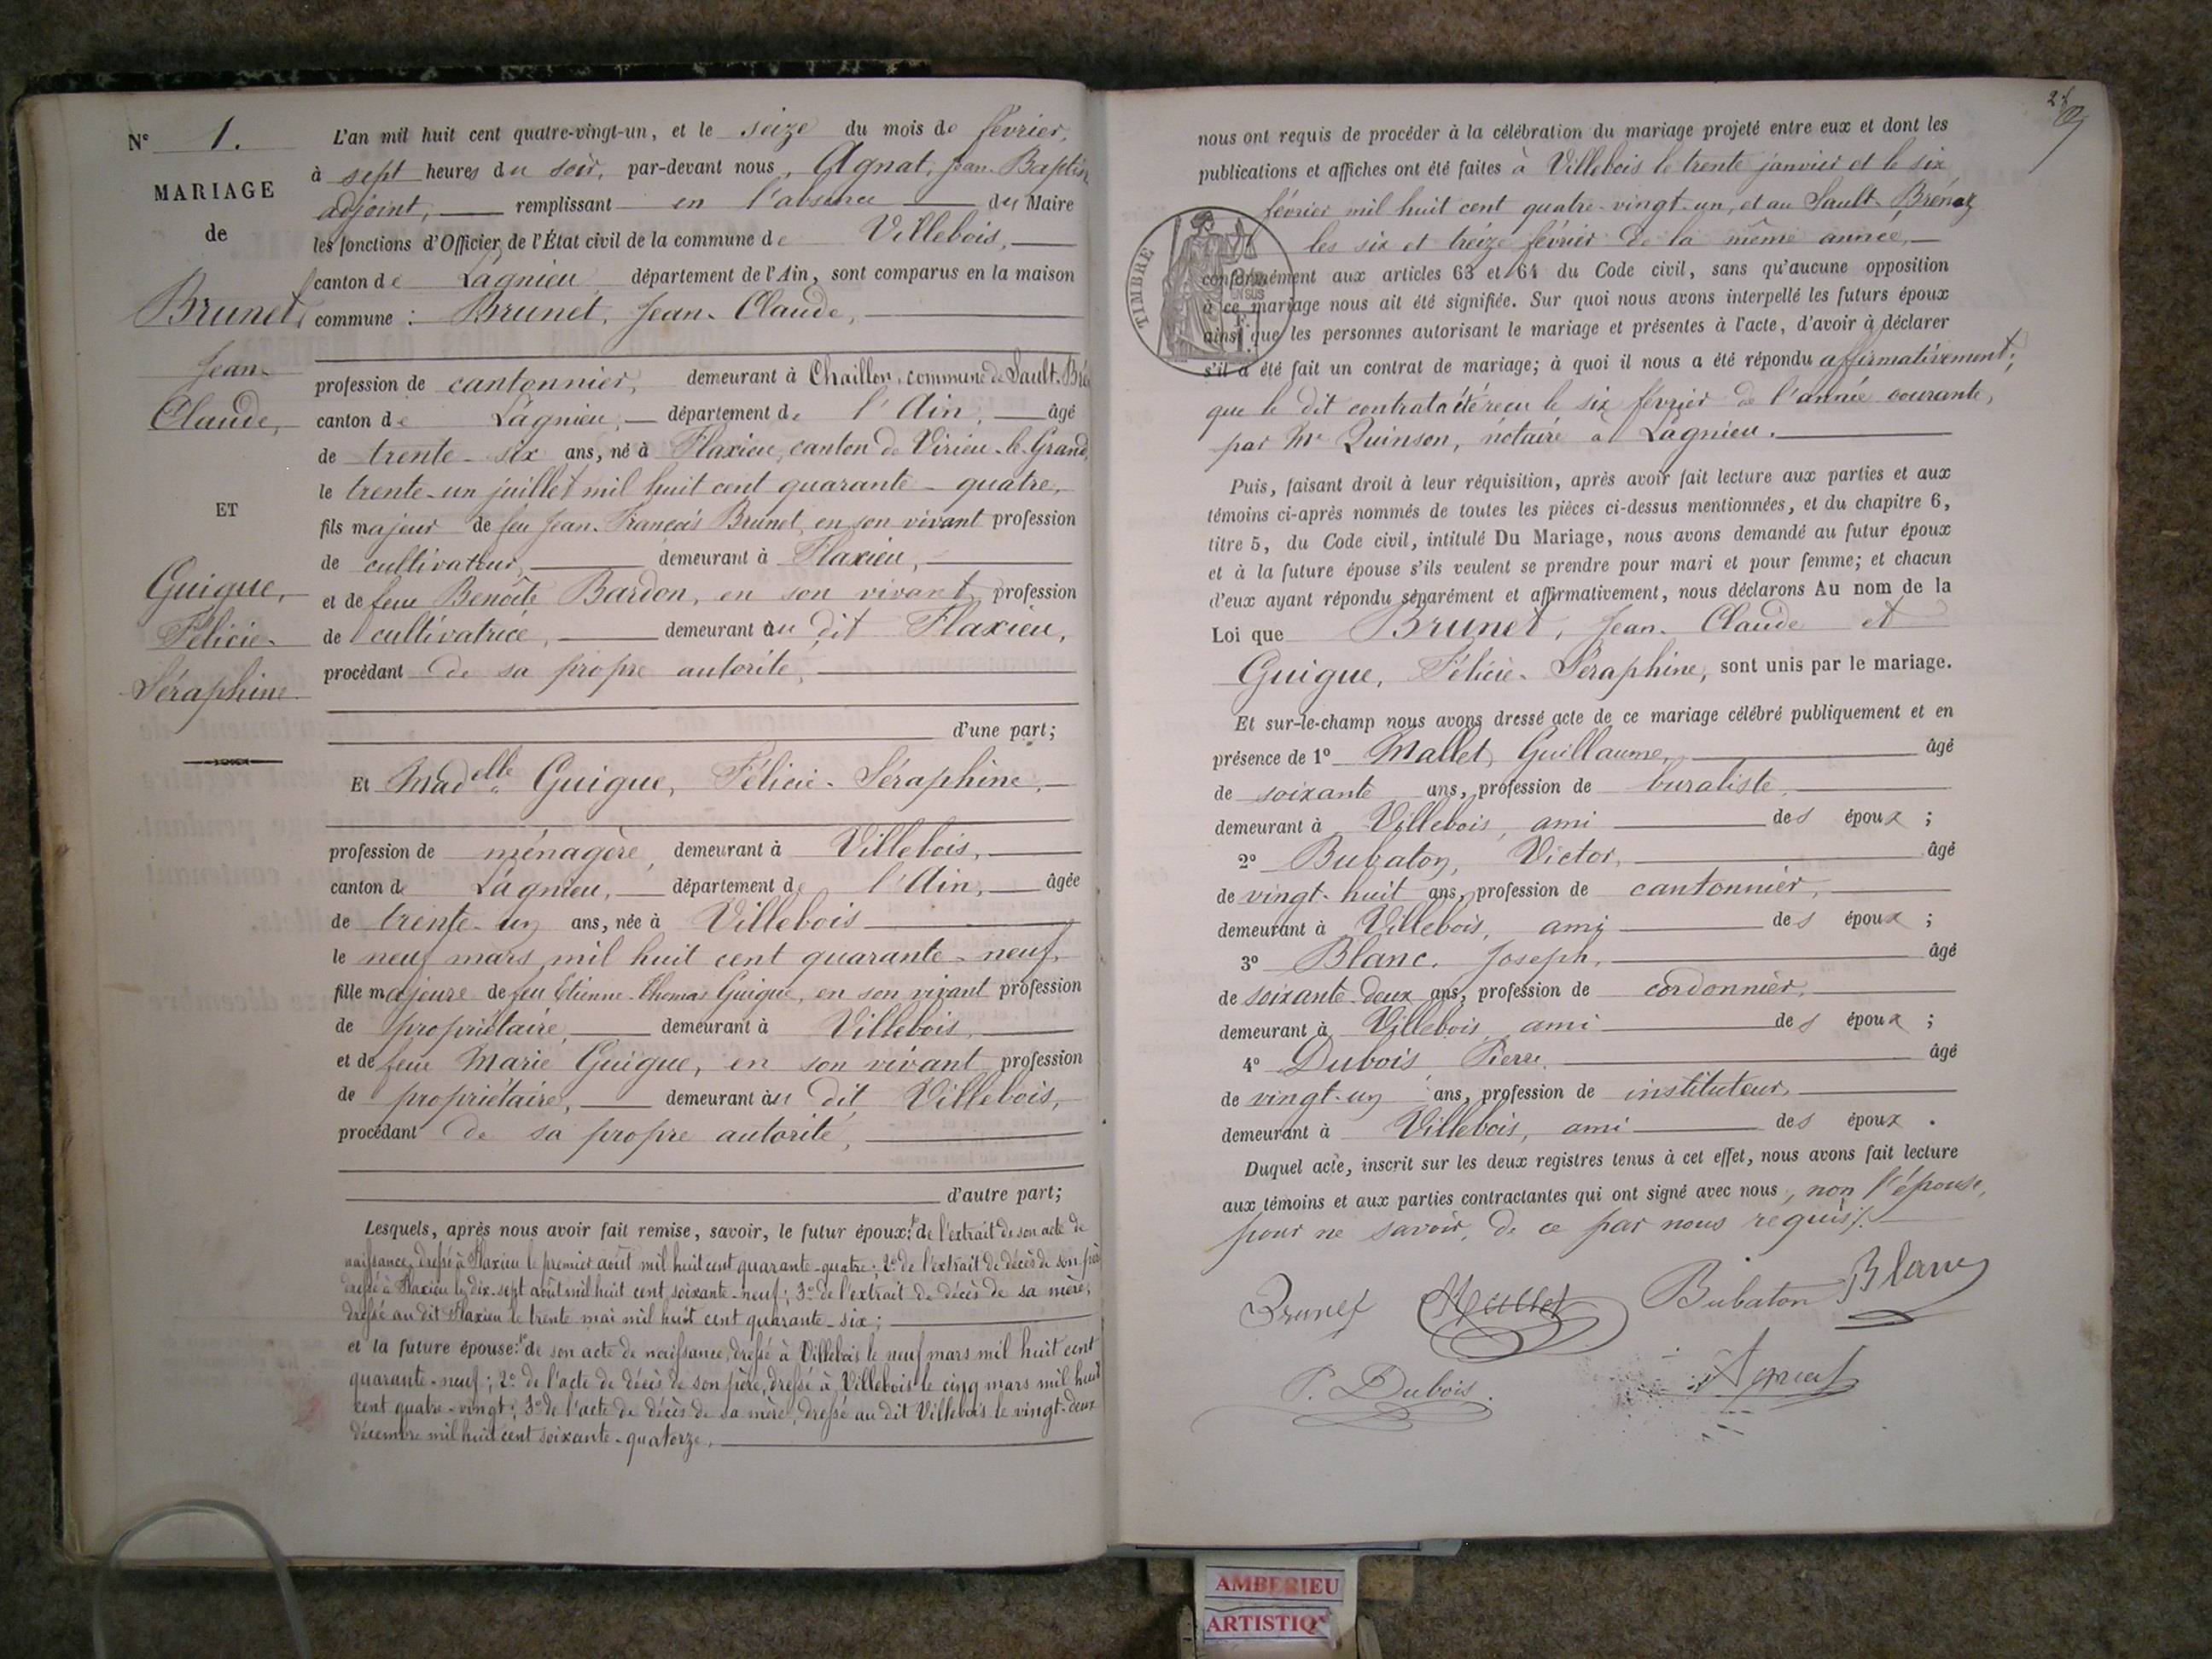 N° 1.
MARIAGE
de
Brunet,
Jean-
Claude,
ET
Guigue,
Félicie-
Séraphine
L'an mil huit cent quatre-vingt-un, et le seize du mois de février,
à sept heures du soir, par-devant nous, Agnat, Jean-Baptiste
adjoint, remplissant en l'absence du Maire
les fonctions d'Officier de l'État civil de la commune de Villebois,
canton de Lagnieu département de l'Ain, sont comparus en la maison
commune : Brunet, Jean-Claude,
profession de cantonnier, demeurant à Chaillon, commune de Sault-Bré
canton de Lagnieu, département de l'Ain, âgé
de trente-six ans, né à Flaxieu, canton de Virieu-le-Grand,
le trente-un juillet mil huit cent quarante-quatre,
fils majeur de feu Jean-François Brunet, en son vivant profession
de cultivateur, demeurant à Flaxieu,
et de feue Benoîte Bardon, en son vivant profession
de cultivatrice, demeurant au dit Flaxieu,
procédant de sa propre autorité,
d'une part;
Et Madelle Guigue, Félicie-Séraphine,
profession de ménagère, demeurant à Villebois,
canton de Lagnieu, département de l'Ain, âgée
de trente-un ans, née à Villebois
le neuf mars mil huit cent quarante-neuf,
fille majeure de feu Etienne-Thomas Guigue, en son vivant profession
de propriétaire, demeurant à Villebois,
et de feue Marie Guigue, en son vivant profession
de propriétaire, demeurant au dit Villebois,
procédant de sa propre autorité,
d'autre part;
Lesquels, après nous avoir fait remise, savoir, le futur époux: 1° de l'extrait de son acte de
naissance, dressé à Flaxieu le premier août mil huit cent quarante-quatre; 2° de l'extrait de décès de son père
dressé à Flaxieu le dix-sept août mil huit cent soixante-neuf; 3° de l'extrait de décès de sa mère,
dressé au dit Flaxieu le trente mai mil huit cent quarante-six;
et la future épouse: 1° de son acte de naissance, dressé à Villebois le neuf mars mil huit cent
quarante-neuf; 2° de l'acte de décès de son père, dressé à Villebois le cinq mars mil huit
cent quatre-vingt; 3° de l'acte de décès de sa mère, dressé au dit Villebois le vingt-deux
décembre mil huit cent soixante-quatorze.
nous ont requis de procéder à la célébration du mariage projeté entre eux et dont les
publications et affiches ont été faites à Villebois le trente janvier et le six
février mil huit cent quatre-vingt-un, et au Sault-Brénaz
les six et treize février de la même année,
conformément aux articles 63 et 64 du Code civil, sans qu'aucune opposition
à ce mariage nous ait été signifiée. Sur quoi nous avons interpellé les futurs époux
ainsi que les personnes autorisant le mariage et présentes à l'acte, d'avoir à déclarer
s'il a été fait un contrat de mariage; à quoi il nous a été répondu affirmativement;
que le dit contrat a été reçu le six février de l'année courante,
par Me Quinson, notaire à Lagnieu.
TIMBRE
Puis, faisant droit à leur réquisition, après avoir fait lecture aux parties et aux
témoins ci-après nommés de toutes les pièces ci-dessus mentionnées, et du chapitre 6,
titre 5, du Code civil, intitulé Du Mariage, nous avons demandé au futur époux
et à la future épouse s'ils veulent se prendre pour mari et pour femme; et chacun
d'eux ayant répondu séparément et affirmativement, nous déclarons Au nom de la
Loi que Brunet, Jean-Claude et
Guigue, Félicie-Séraphine, sont unis par le mariage.
Et sur-le-champ nous avons dressé acte de ce mariage célébré publiquement et en
présence de 1° Mallet, Guillaume, âgé
de soixante ans, profession de buraliste,
demeurant à Villebois, ami des époux;
2° Bubaton, Victor, âgé
de vingt-huit ans, profession de cantonnier,
demeurant à Villebois, ami des époux;
3° Blanc, Joseph, âgé
de soixante-deux ans, profession de cordonnier,
demeurant à Villebois ami des époux;
4° Dubois Pierre, âgé
de vingt-un ans, profession de instituteur,
demeurant à Villebois, ami des époux.
Duquel acte, inscrit sur les deux registres tenus à cet effet, nous avons fait lecture
aux témoins et aux parties contractantes qui ont signé avec nous, non l'épouse,
pour ne savoir, de ce par nous requis.
Brunet Mallet Bubaton Blanc
P. Dubois. Agnat
AMBERIEU
ARTISTIQ